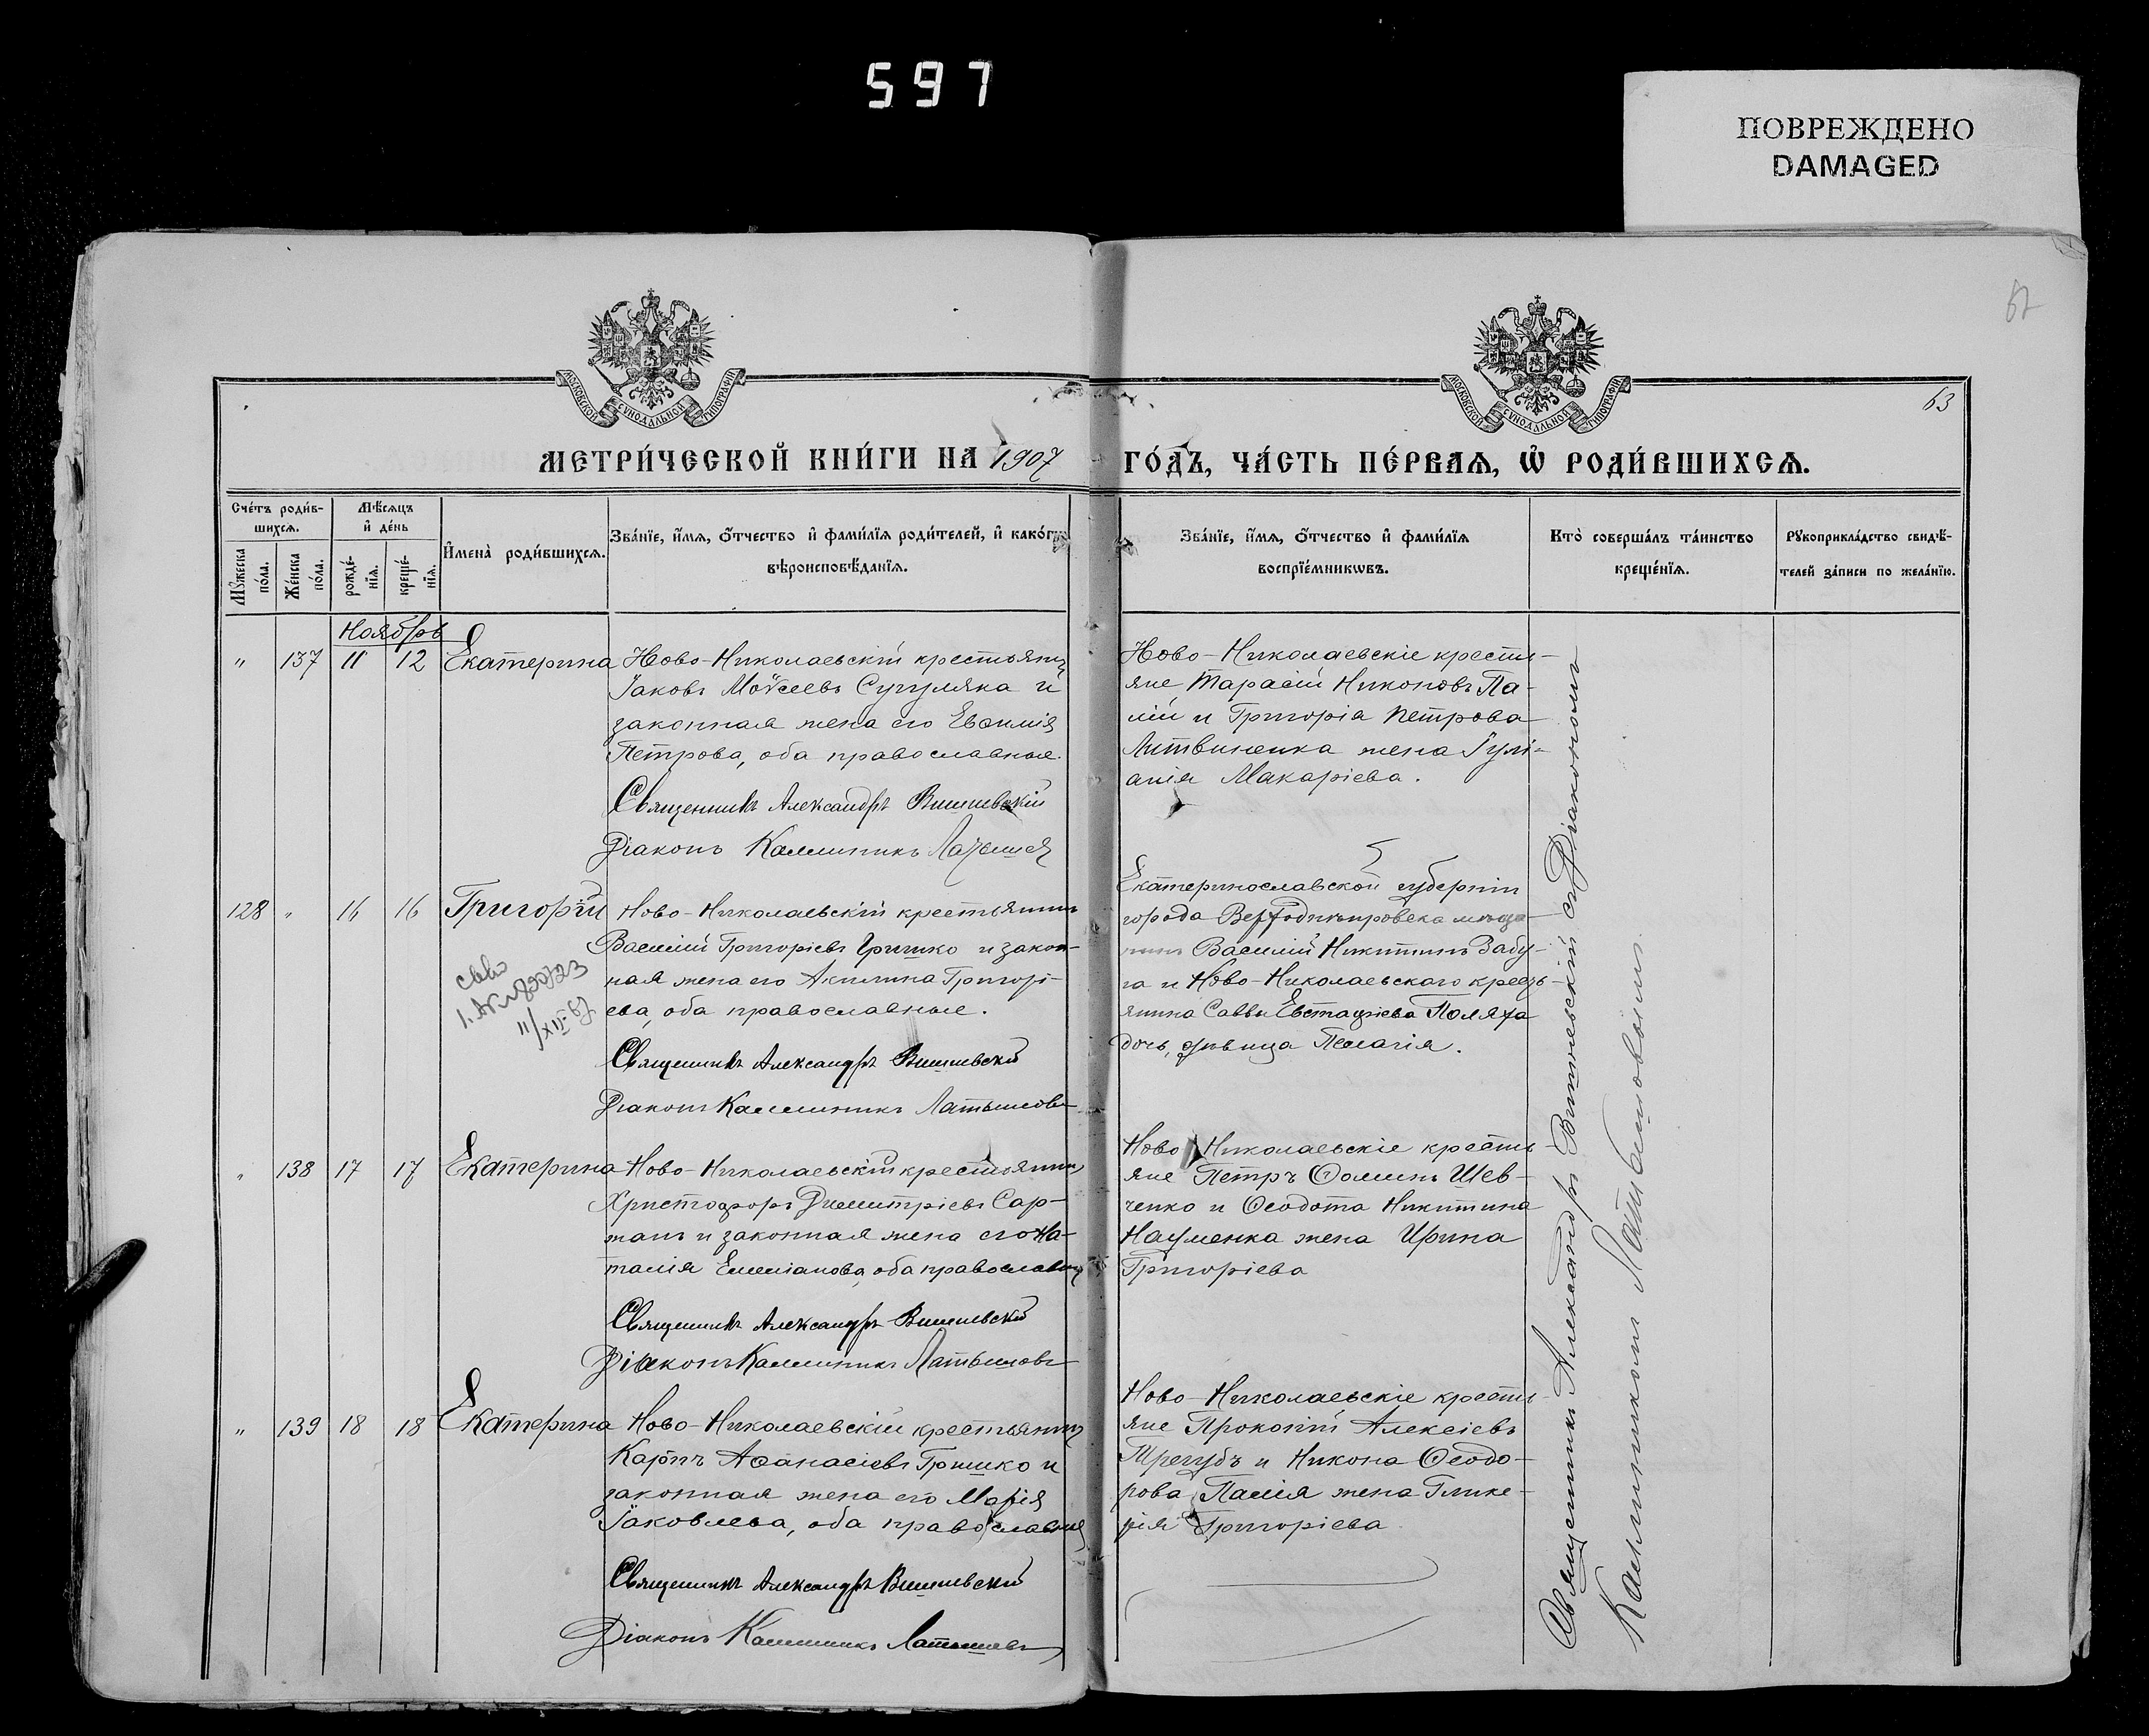 597
ПОВРЕЖДЕНО
DAMAGED
МОСКОВСКОЙ СѴНОДАЛЬНОЙ ТИПОГРАФІИ
МОСКОВСКОЙ СѴНОДАЛЬНОЙ ТИПОГРАФІИ
63
МЕТРИ́ЧЕСКОЙ КНИ́ГИ НА 1907 ГО́ДЪ, ЧА́СТЬ ПЕ́РВАЯ, Ѡ҆ РОДИ́ВШИХСЯ.
Сче́тъ роди́вшихся.
Мꙋ́жеска по́ла.
Же́нска по́ла.
Мѣ́сяцъ и҆ де́нь
рожде́нїя.
креще́нїя.
И҆мена̀ роди́вшихся.
Зва́нїе, и҆́мя, ѻ҆́тчество и҆ фами́лїя роди́телей, и҆ како́гѡ
вѣроисповѣ́данїя.
Зва́нїе, и҆́мя, ѻ҆́тчество и҆ фами́лїя
воспрїе́мникѡвъ.
Кто̀ соверша́лъ та́инство
креще́нїя.
Рꙋкоприкла́дство свидѣ́-
телей за́писи по жела́нїю.
Ноябрь
" 137 11 12 Екатерина
Ново-Николаевскій крестьянинъ
Іаковъ Моѵсеевъ Сугуляка и
законная жена его Евѳимія
Петрова, оба православные.
Священникъ Александръ Вишневскій
Діаконъ Каллиникъ
Ново-Николаевскіе крестья-
яне Тарасій Никоновъ Па-
лій и Григорія Петрова
Литвиненка жена Іулі-
анія Макаріева.
128 " 16 16 Григорій
Ново-Николаевскій крестьянинъ
Василій Григоріевъ Гришко и закон-
ная жена его Акилина Григорі-
ева, оба православные.
Священникъ Александръ Вишневскій
Діаконъ Каллиникъ Латышовъ
Екатеринославской губерніи
города Верходнѣпровска мѣща-
нинъ Василій Никитинъ Забу-
га и Ново-Николаевскаго кресть-
янина Саввы Евстафіева
дочь, дѣвица Пелагія.
" 138 17 17 Екатерина
Ново-Николаевскій крестьянинъ
Христофоръ Димитріевъ Сар-
танъ и законная жена его На-
талія Емеліанова, оба православные
Священникъ Александръ Вишневскій
Діаконъ Каллиникъ Латышовъ
Ново-Николаевскіе кресть-
яне Петръ Ѳоминъ Шев-
ченко и Ѳеодота Никитина
Науменка жена Ирина
Григоріева
" 139 18 18 Екатерина
Ново-Николаевскій крестьянинъ
Карпъ Аѳанасіевъ Гришко и
законная жена его Марія
Іаковлева, оба православные
Священникъ Александръ Вишневскій
Діаконъ Каллиникъ Латышовъ
Ново-Николаевскіе кресть-
яне Прокопій Алексіевъ
Трегубъ и Никона Ѳеодо-
рова Палія жена Глике-
рія Григоріева
Священникъ Александръ Вишневскій съ Діакономъ
Каллиникомъ Латышовымъ